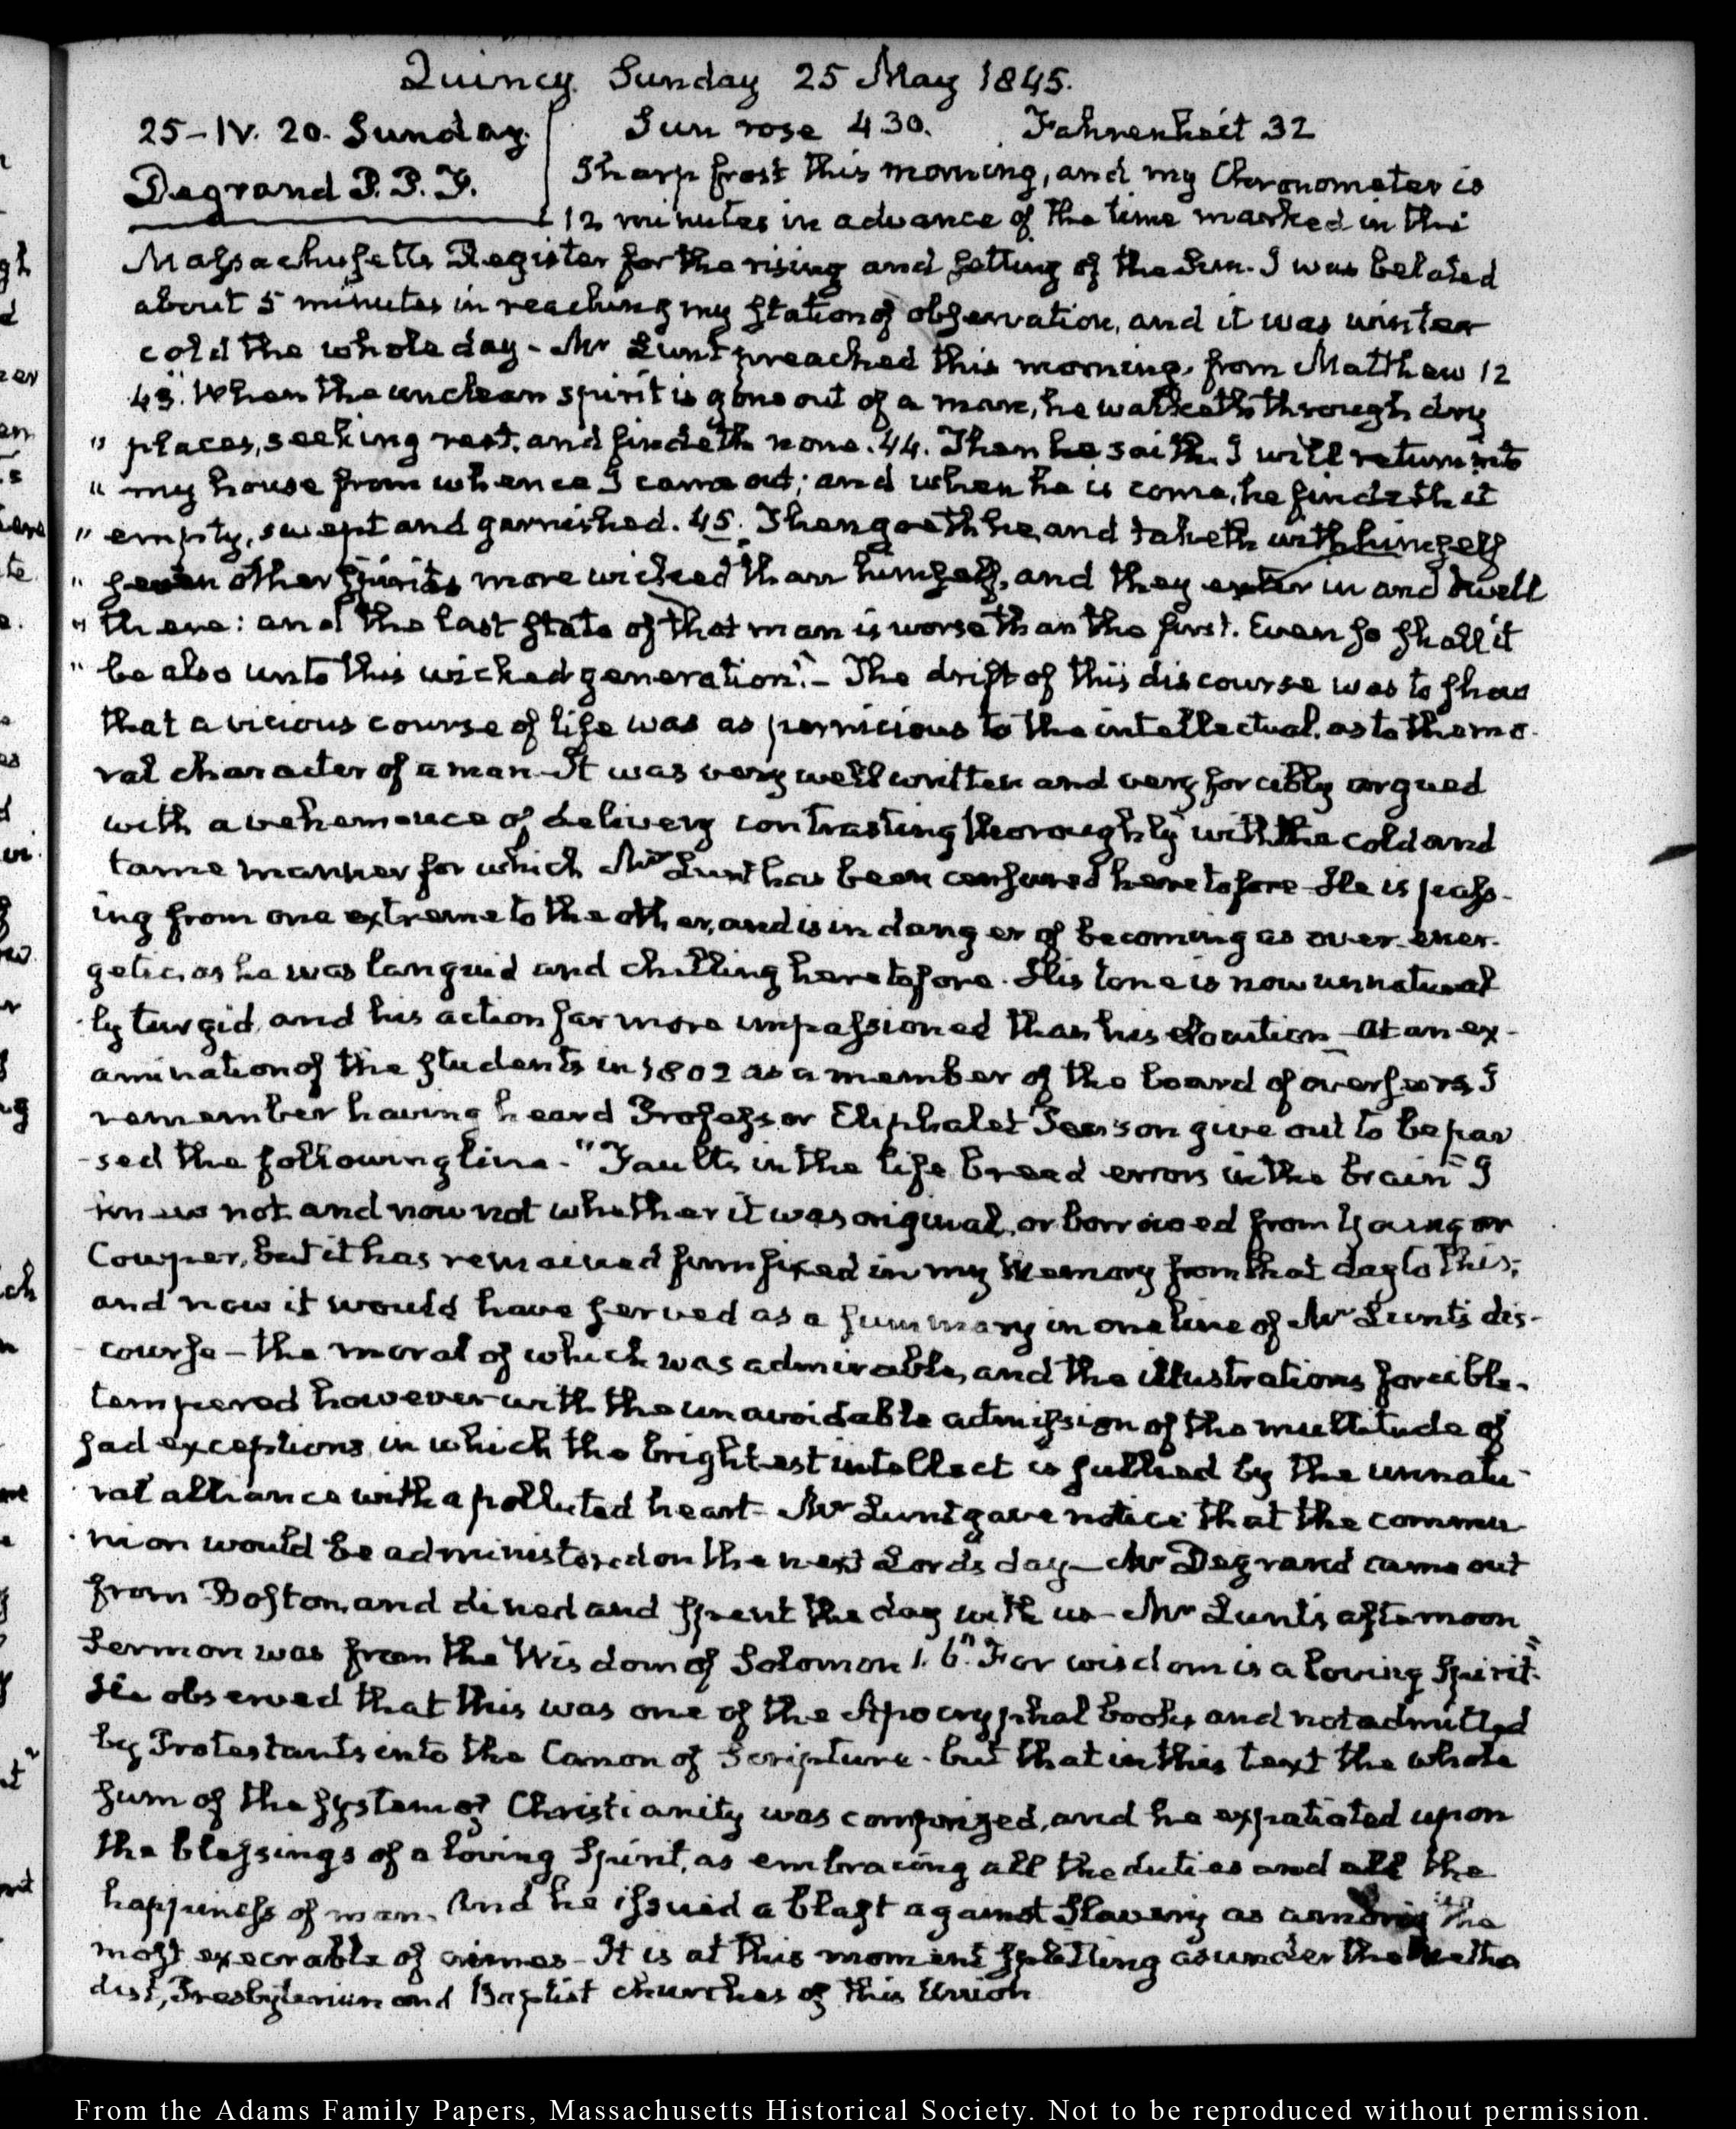 Quincy Sunday 25 May 1845.
25–IV. 20. Sunday.
Degrand P. P. F.
Sun rose 4.30. Fahrenheit 32
Sharp frost this morning, and my Chronometer is
12 minutes in advance of the time marked in the
Massachusetts Register for the rising and setting of the Sun. I was belated
about 5 minutes in reaching my station of observation, and it was winter
cold the whole day – Mr Lunt preached this morning, from Matthew 12
43. "When the unclean spirit is gone out of a man, he walketh through dry
" places, seeking rest, and findeth none. 44. Then he saith. I will return into
" my house from whence I came out; and when he is come, he findeth it
" empty, swept and garnished. 45. Then goeth he, and taketh with himself
" seven other spirits more wicked than himself, and they enter in and dwell
" there: and the last state of that man is worse than the first. Even so shall it
" be also unto this wicked generation." – The drift of this discourse was to shew
that a vicious course of life was as pernicious to the intellectual, as to the mo-
ral character of a man – It was very well written and very forcibly argued
with a vehemence of delivery contrasting thoroughly with the cold and
tame manner for which Mr Lunt has been censured heretofore – He is pass-
ing from one extreme to the other, and is in danger of becoming as over-ener-
getic, as he was languid and chilling heretofore. His tone is now unnatural
ly turgid, and his action far more impassioned than his elocution – At an ex-
amination of the students in 1802 as a member of the board of overseers, I
remember having heard Professor Eliphalet Pearson give out to be par
-sed the following line – "Faults in the life breed errors in the brain" I
knew not and now not whether it was original, or borrowed from Young or
Cowper, but it has remained firm fixed in my Memory from that day to this;
and now it would have served as a summary in one line of Mr Lunt's dis-
course – the moral of which was admirable, and the illustrations forcible.
tempered however with the unavoidable admission of the multitude of
sad exceptions, in which the brightest intellect is sullied by the unnatu-
ral alliance with a polluted heart – Mr Lunt gave notice that the commu-
nion would be administered on the next Lords day – Mr Degrand came out
from Boston, and dined and spent the day with us – Mr Lunt's afternoon
Sermon was from the Wisdom of Solomon 1. 6. "For wisdom is a loving Spirit."
He observed that this was one of the Apocryphal books and not admitted
by Protestants into the Canon of Scripture – but that in this text the whole
sum of the system of Christianity was comprized, and he expatiated upon
the blessings of a loving Spirit, as embracing all the duties and all the
happiness of man. And he issued a blast against Slavery as among the
most execrable of crimes – It is at this moment splitting asunder the Metho
dist, Presbyterian and Baptist churches of this Union
From the Adams Family Papers, Massachusetts Historical Society. Not to be reproduced without permission.